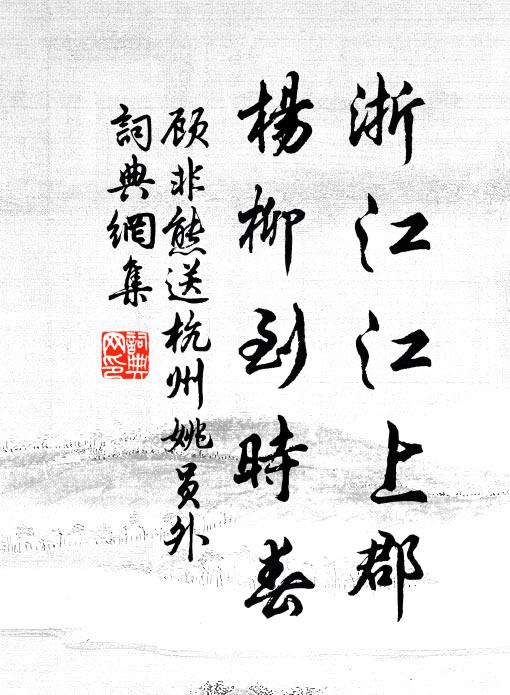 浙江江上郡
楊柳到時春
顾非熊送杭州姚員外
詞典網集
詞典
网印